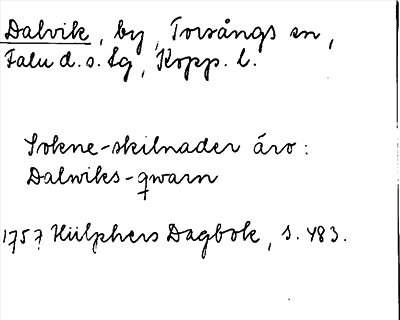 Dalvik, by, Torsångs sn,
Falu d. s. lg, Kopp. l.
Sokne-skilnader äro:
Dalwiks-qwarn
1757 Hülphers Dagbok, s. 483.